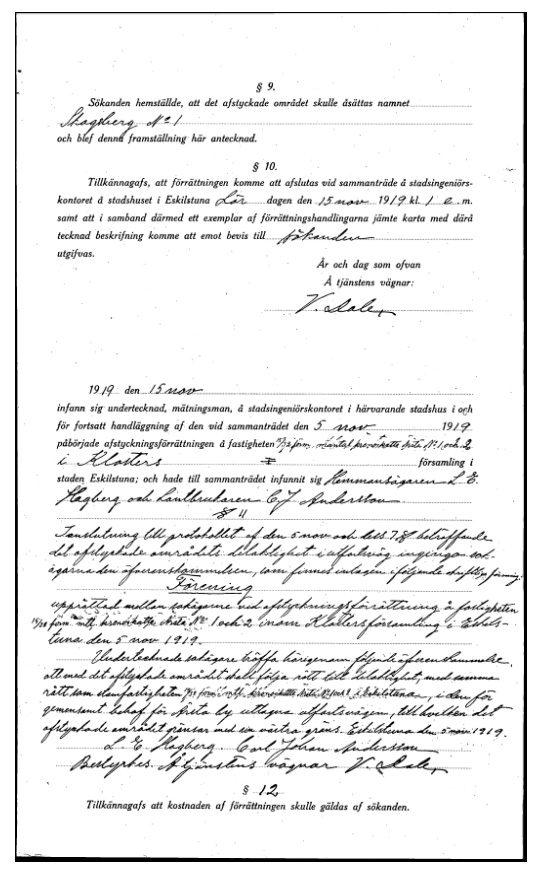 § 9.
Sökanden hemställde, att det afstyckade området skulle åsättas namnet
Skogsberg No 1
och blef denna framställning här antecknad.
§ 10.
Tillkännagafs, att förrättningen komme att afslutas vid sammanträde å stadsingeniörs-
kontoret å stadshuset i Eskilstuna Lör dagen den 15 nov 1919 kl. 1 e. m.
samt att i samband därmed ett exemplar af förrättningshandlingarna jämte karta med därå
tecknad beskrifning komme att emot bevis till sökanden
utgifvas.
År och dag som ofvan
Å tjänstens vägnar:
V. Dalen
1919 den 15 nov
infann sig undertecknad, mätningsman, å stadsingeniörskontoret i härvarande stadshus i och
för fortsatt handläggning af den vid sammanträdet den 5 nov 1919
påbörjade afstyckningsförrättningen å fastigheten förm. mantal kronoskatte Årsta No 1 och 2
i Klosters församling i
staden Eskilstuna; och hade till sammanträdet infunnit sig Hemmansägaren L. E.
Hagberg och Lantbrukaren C. J. Andersson
I anslutning till protokollet af den 5 nov och dess 7 § beträffande
det afstyckade områdets delaktighet i utfartsväg ingingo sak-
ägarna den öfverenskommelsen, som finnes intagen i följande skriftliga förening:
Förening
upprättad mellan sakägarne vid afstyckningsförrättning å fastigheten
förm. mtl. kronoskatte Årsta No 1 och 2 inom Klosters församling i Eskils-
tuna den 5 nov 1919.
Undertecknade sakägare träffa härigenom följande öfverenskommelse,
att med det afstyckade området skall följa rätt till delaktighet, med samma
rätt som stamfastigheten förm. mtl. kronoskatte Årsta No 1 och 2 i Eskilstuna, i den för
gemensamt behof för Årsta by uttagna utfartsvägen, till hvilken det
afstyckade området gränsar med sin västra gräns. Eskilstuna den 5 nov 1919.
L. E. Hagberg. Carl Johan Andersson
Bestyrkes. Å tjänstens vägnar V. Dalen
§ 12
Tillkännagafs att kostnaden af förrättningen skulle gäldas af sökanden.